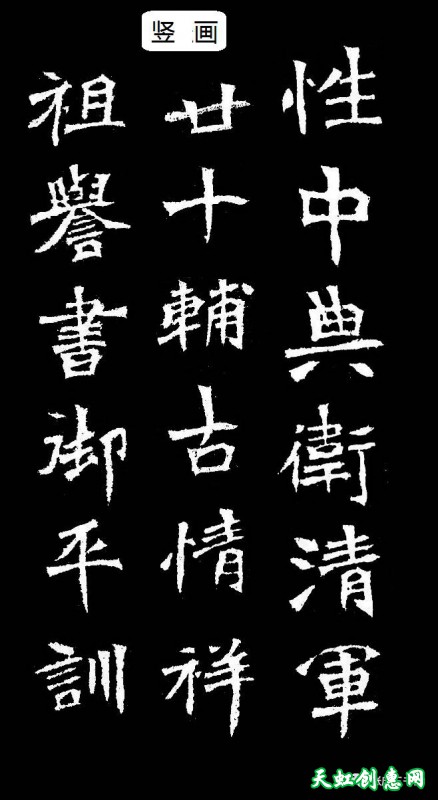 竖画
性中典衛清軍
廿十輔古情祥
祖譽書御平訓
天虹创惠网